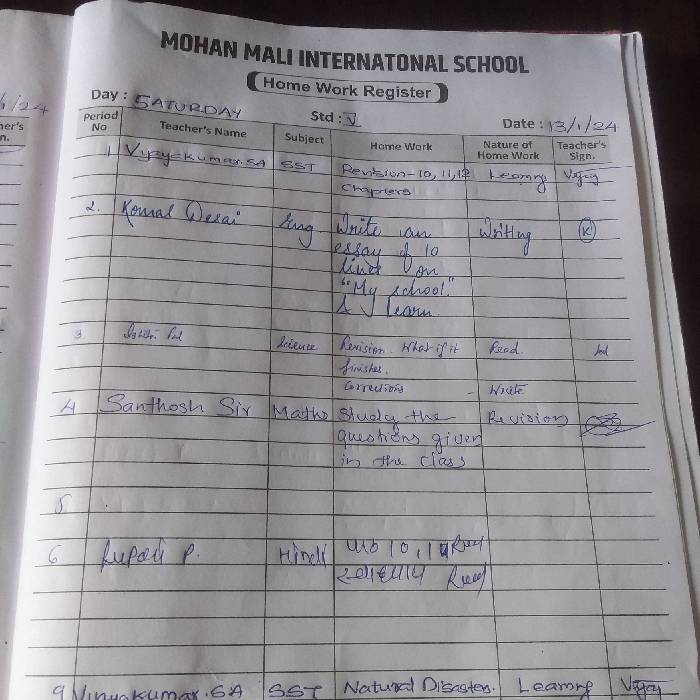 MOHAN MALI INTERNATONAL SCHOOL
Home Work Register
Day : SATURDAY Std : V Date : 13/1/24
Period No Teacher's Name Subject Home Work Nature of Home Work Teacher's Sign.
1 Vijaykumar.SA SST Revision-10, 11, 12 Learning Vijay
chapters
2. Komal Desai Eng Write an Writing K
essay of 10
lines on
"My school"
& learn
3. Science Revision What if it Read.
finishes.
corrections - Write
4 Santhosh Sir Maths Study the Revision
questions given
in the class
5
6 Rupali P. Hindi 10, 11 Read
Read
9 Vinyakumar.SA SST Natural Disasters. Learning Vijay
/24